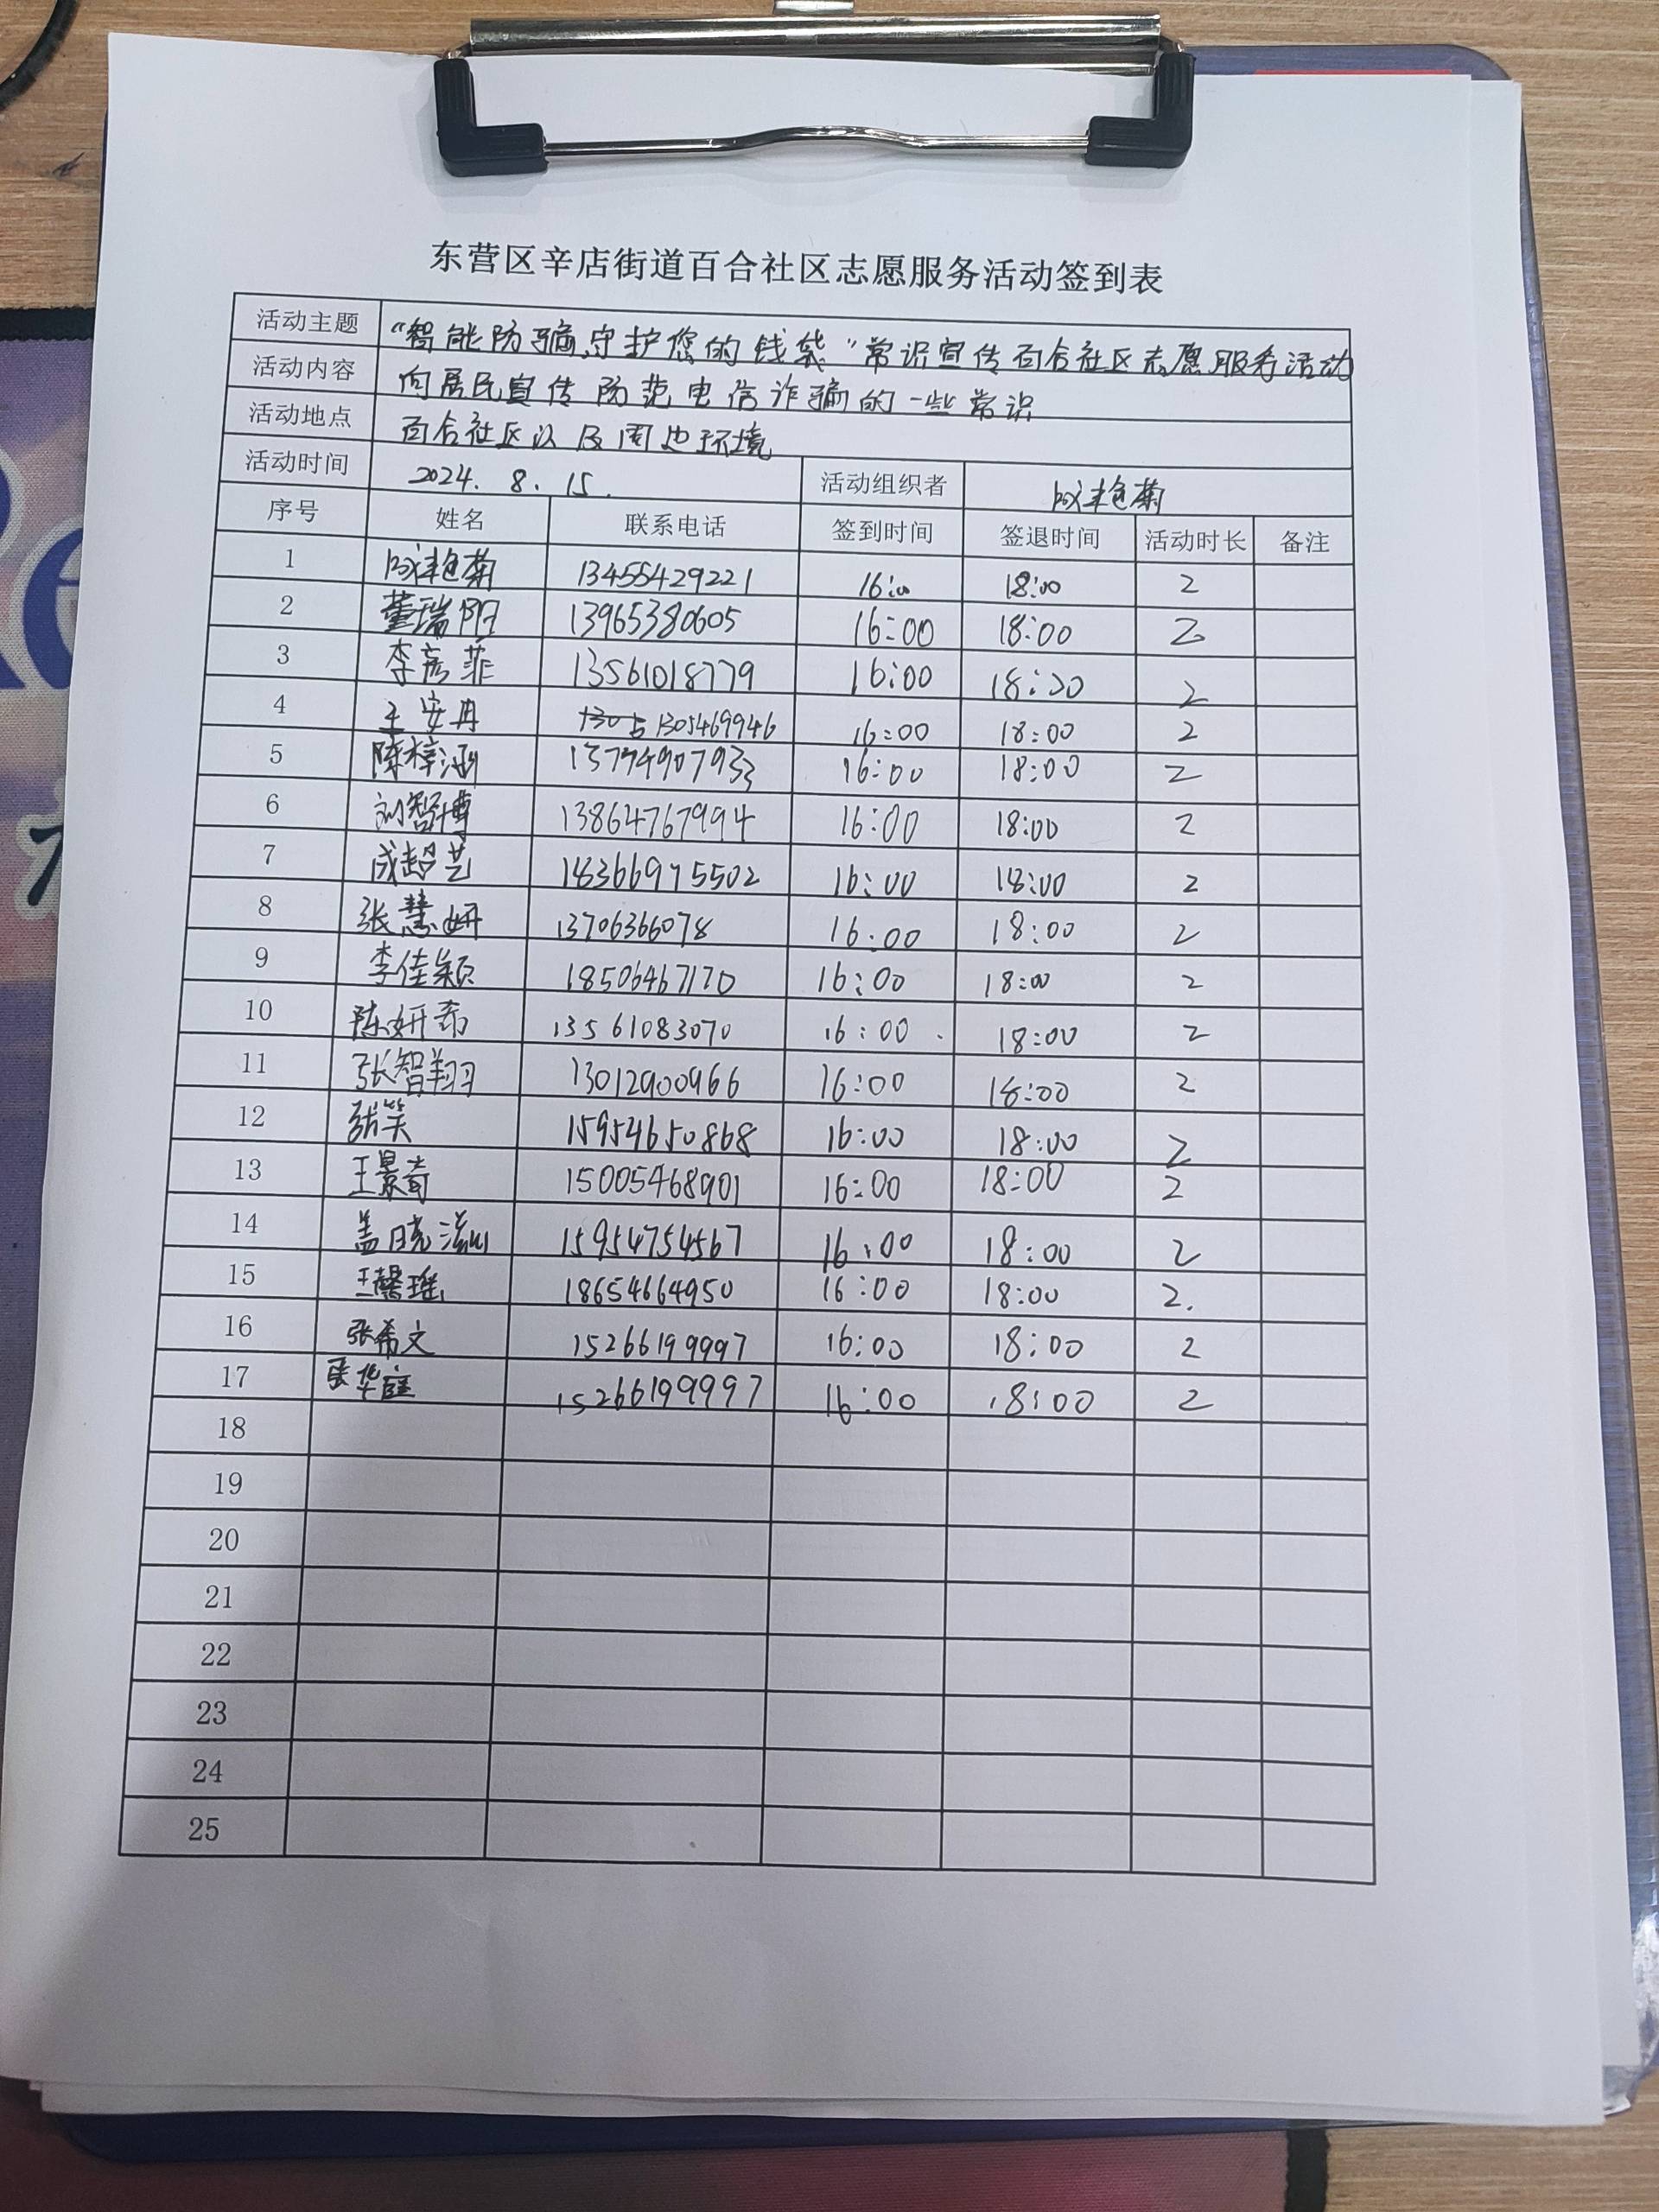 东营区辛店街道百合社区志愿服务活动签到表
活动主题 “智能防骗,守护您的钱袋”常识宣传百合社区志愿服务活动
活动内容 向居民宣传防范电信诈骗的一些常识
活动地点 百合社区以及周边环境
活动时间 2024.8.15. 活动组织者 艳菊
序号 姓名 联系电话 签到时间 签退时间 活动时长 备注
1 艳菊 13455429221 16:00 18:00 2
2 董瑞阳 13965380605 16:00 18:00 2
3 李彦菲 13561018779 16:00 18:20 2
4 王安冉 1305469946 16:00 18:00 2
5 陈梓涵 13794907933 16:00 18:00 2
6 刘智博 13864767994 16:00 18:00 2
7 成超艺 18366975502 16:00 18:00 2
8 张慧妍 1370636078 16:00 18:00 2
9 李佳颖 18506467170 16:00 18:00 2
10 陈妍希 13561083070 16:00 18:00 2
11 张智翔 13012900966 16:00 18:00 2
12 张笑 15954650868 16:00 18:00 2
13 王景奇 15005468901 16:00 18:00 2
14 盖晓滋 15954754567 16:00 18:00 2
15 王馨瑶 18654664950 16:00 18:00 2.
16 张希文 15266199997 16:00 18:00 2
17 张华庭 15266199997 16:00 18:00 2
18
19
20
21
22
23
24
25